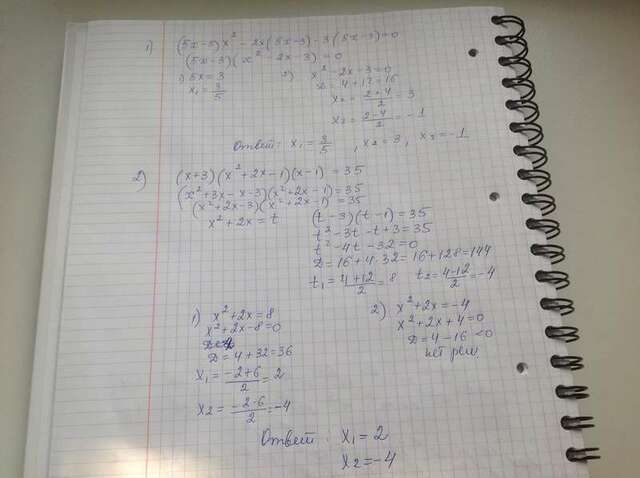 1) (5x-3)x² - 2x(5x-3) - 3(5x-3)=0
(5x-3)(x² - 2x - 3)=0
1) 5x=3
x₁=3/5
2) x²-2x-3=0
D=4+12=16
x₂=(2+4)/2=3
x₃=(2-4)/2=-1
Ответ: x₁=3/5, x₂=3, x₃=-1
2) (x+3)(x²+2x-1)(x-1)=35
(x²+3x-x-3)(x²+2x-1)=35
(x²+2x-3)(x²+2x-1)=35
x²+2x=t
(t-3)(t-1)=35
t²-3t-t+3=35
t²-4t-32=0
D=16+4·32=16+128=144
t₁=(4+12)/2=8 t₂=(4-12)/2=-4
1) x²+2x=8
x²+2x-8=0
D=4+32=36
x₁=(-2+6)/2=2
x₂=(-2-6)/2=-4
2) x²+2x=-4
x²+2x+4=0
D=4-16<0
нет реш.
Ответ: x₁=2
x₂=-4